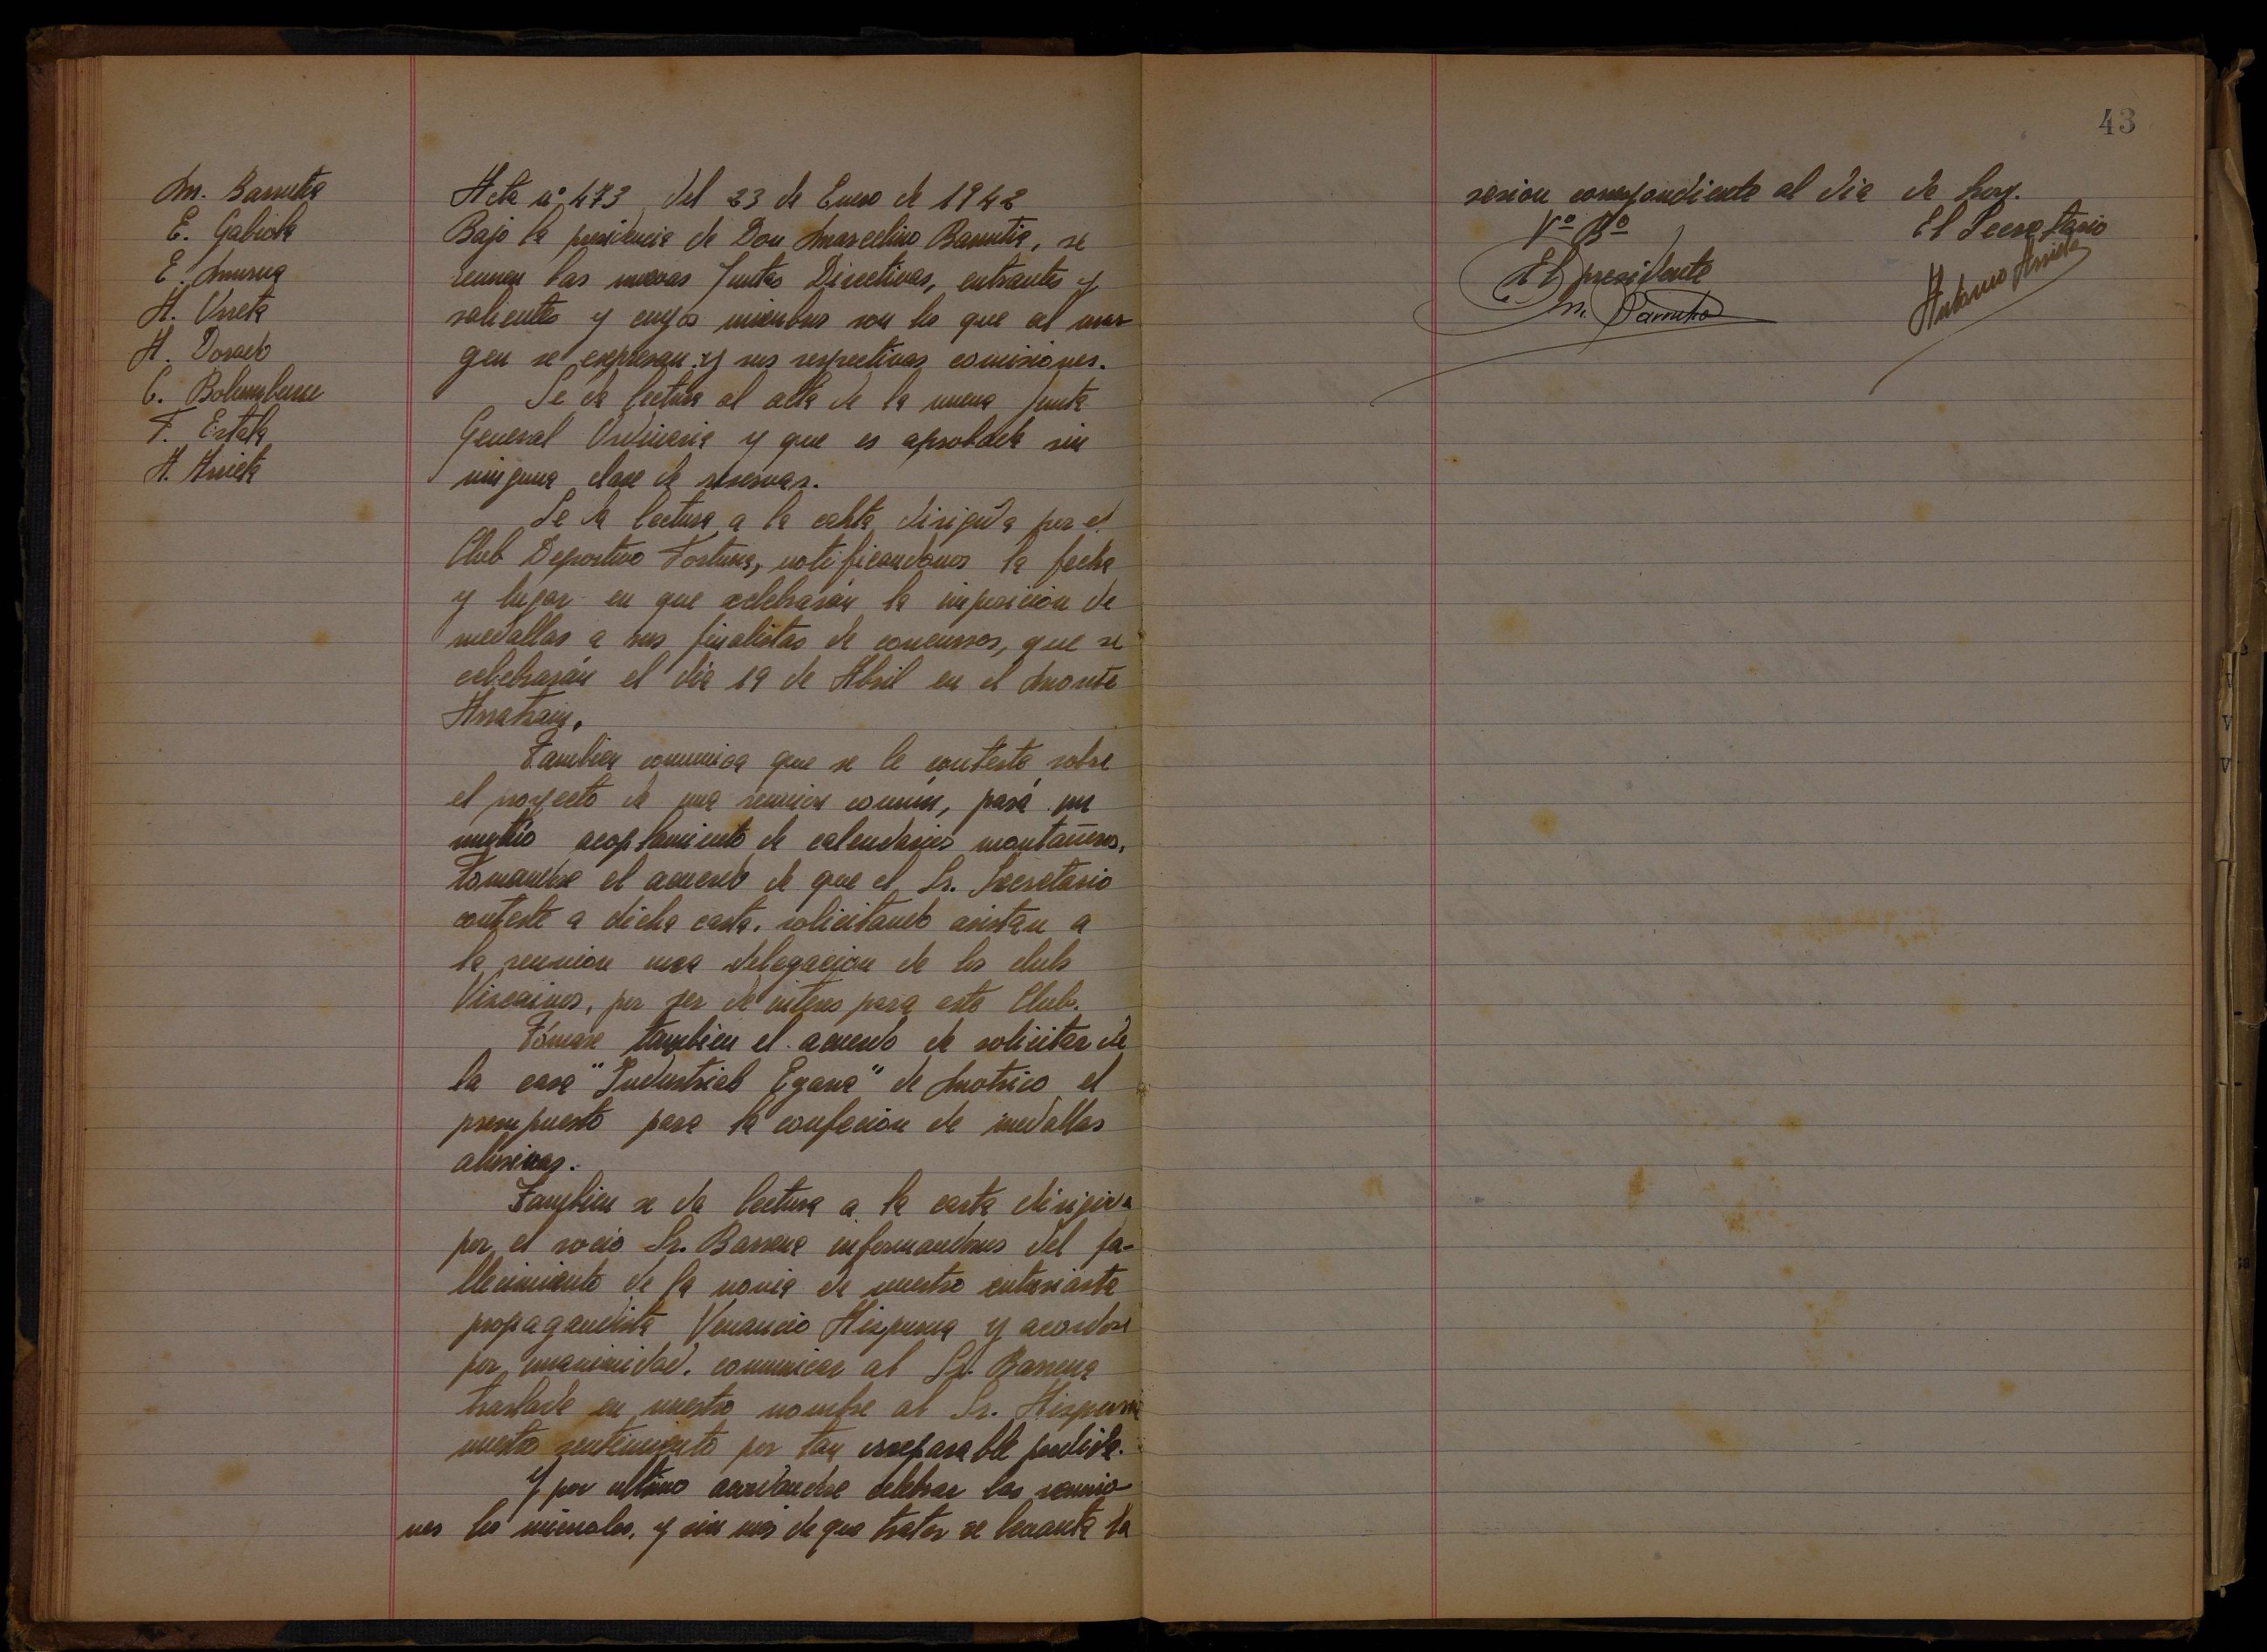 M. Barrutia
E. Gabiola
E. Murua
A. Urreta
A. Dorado
C. Bolumburu
F. Estala
A. Arrieta
Acta nº 473 del 23 de Enero de 1942
Bajo la presidencia de Don Marcelino Barrutia, se
reunen las nuevas Juntas Directivas, entrantes y
salientes y cuyos miembros son los que al mar
gen se expresan y sus respectivas comisiones.
Se da lectura al acta de la nueva Junta
General Ordinaria y que es aprobada sin
ninguna clase de reservas.
Se da lectura a la carta dirigida por el
Club Deportivo Fortuna, notificandonos la fecha
y lugar en que celebrarán la imposición de
medallas a sus finalistas de concursos, que se
celebrarán el día 19 de Abril en el Monte
Arratrain.
Tambien comunica que se le conteste sobre
el proyecto de una reunion común, pará un
acoplamiento de calendarios montañeros.
Tomandose el acuerdo de que el Sr. Secretario
conteste a dicha carta. solicitando asistan a
la reunion una delegacion de los clubs
Viscainos, por ser de interes para este Club.
Tómase tambien el acuerdo de solicitar de
la casa "Industrial Egana" de Motrico el
presupuesto para la confecion de medallas
alusivas.
Tambien se da lectura a la carta dirigida
por el socio Sr. Barrena informandonos del fa-
llecimiento de la novia de nuestro entusiasta
propagandista Venancio Aizpurua y acordose
por unanimidad. comunicar al Sr. Barrena
traslade en nuestro nombre al Sr. Aizpurua
nuestro sentimiento por tan irreparable perdida.
Y por ultimo acordandose celebrar las reunio
nes los miercoles. y sin mas de que tratar se levanta la
43
sesion correspondiente al dia de hoy.
Vº Bº
El Secretario
El presidente
Antonio Arrieta
M. Barrutia